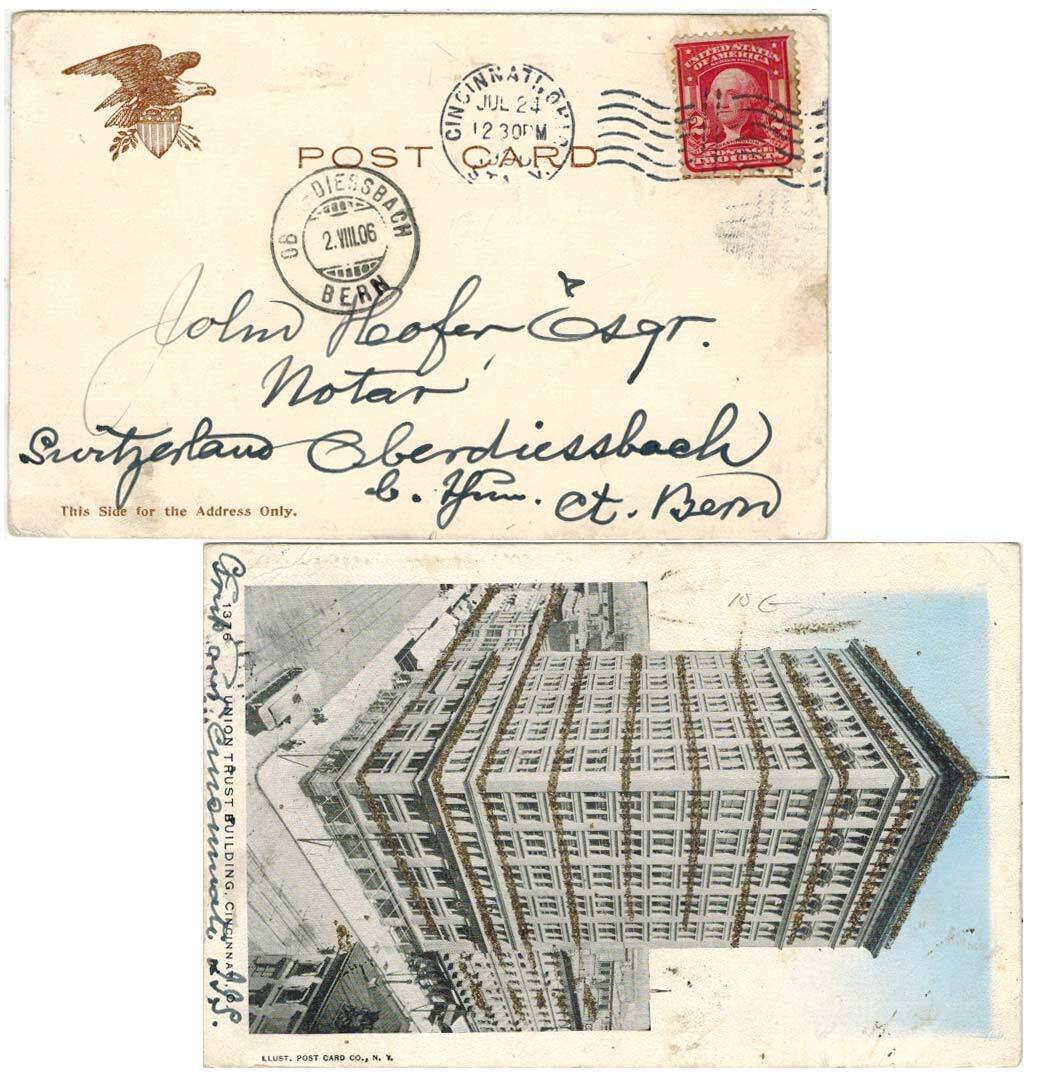 UNITED STATES
OF AMERICA
2
POSTAGE
TWO CENTS
CINCINNATI, OHIO
JUL 24
12 30 PM
POST CARD
OB DIESSBACH
2.VIII.06
BERN
John Hofer Esqr.
Notar
Switzerland Oberdiessbach
Ct. Bern
This Side for the Address Only.
1376 UNION TRUST BUILDING, CINCINNATI, O.
ILLUST. POST CARD CO., N. Y.
10